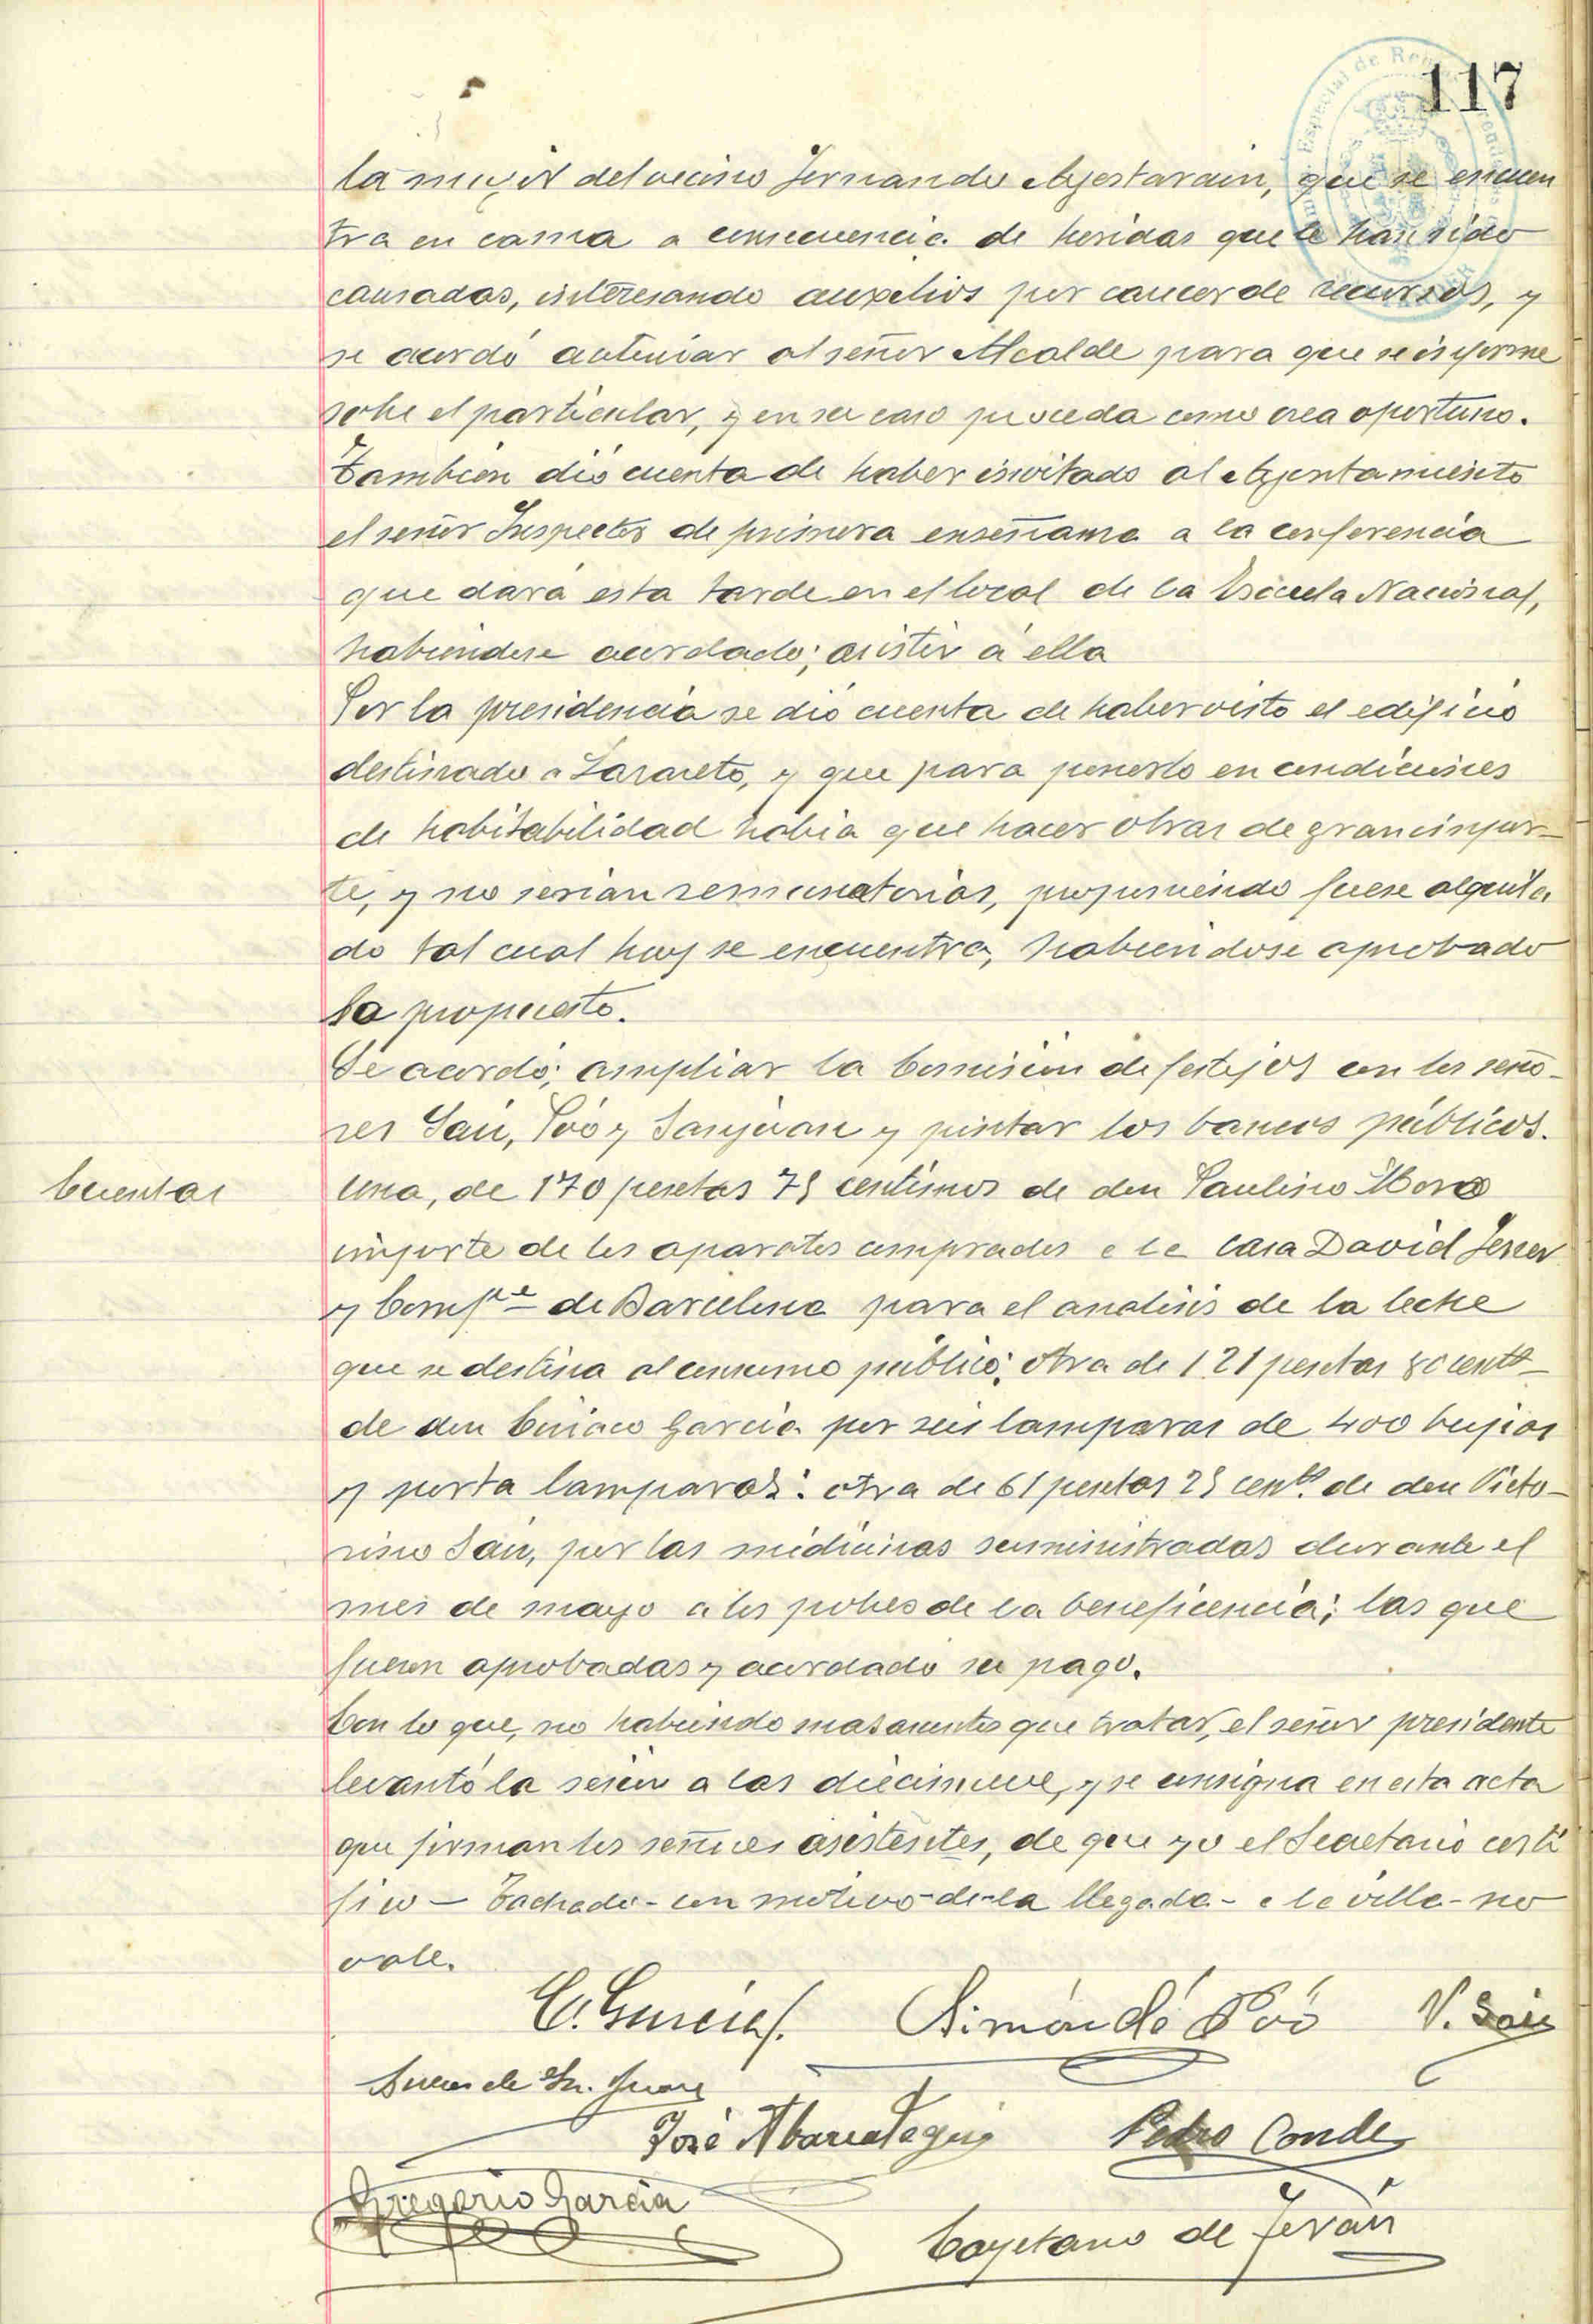 117
la mujer del vecino Fernando Ayestarain, que se encuen
tra en cama a consecuencia de heridas que le han sido
causadas, interesando auxilios por carecer de recursos, y
se acordó autorizar al señor Alcalde para que se informe
sobre el particular, y en su caso proceda como crea oportuno.
Tambien dió cuenta de haber invitado al Ayuntamiento
el señor Inspector de primera enseñanza a la conferencia
que dará esta tarde en el local de la Escuela Nacional,
habiendose acordado; asistir á ella
Por la presidencia se dió cuenta de haber visto el edificio
destinado a Lazareto, y que para ponerlo en condiciones
de habitabilidad habia que hacer obras de gran impor-
te, y no serian remuneratorias, proponiendo fuese alquila
do tal cual hoy se encuentra, habiendose aprobado
la propuesta.
Se acordó; ampliar la Comisión de festejos con los seño-
res Sai, Póo y Sanjuan y pintar los bancos públicos.
Cuentas
Una, de 170 pesetas 75 centimos de don Paulino
importe de los aparatos comprados a la casa David Ferrer
y Compª de Barcelona para el analisis de la leche
que se destina al consumo público; otra de 121 pesetas 80 centˢ
de don Ciriaco Garcia por seis lamparas de 400 bujias
y porta lamparas: otra de 61 pesetas 25 centˢ de don Victo-
rino Sai, por las medicinas suministradas durante el
mes de mayo a los pobres de la beneficencia; las que
fueron aprobadas y acordado su pago.
Con lo que, no habiendo mas asuntos que tratar, el señor presidente
levantó la sesión a las diecinueve, y se consigna en esta acta
que firman los señores asistentes, de que yo el Secretario certi
fico – Tachado - con motivo - de - la llegada - a la villa - no
vale.
C. Garcia
Simón de Póo
V. Sai
Sn. Juan
José Abarrategui
Pedro Conde
Gregorio Garcia
Cayetano de Terán